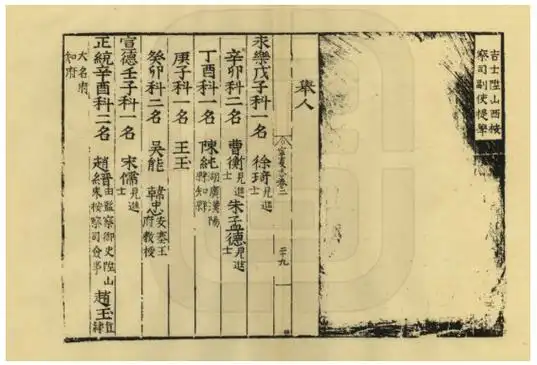 吉士陞山西按
察司副使提學
舉人
寧夏志卷二
二十九
永樂戊子科一名 徐琦見進士
辛卯科二名 曹衡見進士 朱孟德見進士
丁酉科一名 陳純湖廣漢陽縣知縣
庚子科一名 王玉
癸卯科二名 吳能 韓忠安塞王府教授
宣德壬子科一名 宋儒見進士
正統辛酉科二名 趙縉由監察御史陞山東按察司僉事 趙玉直隸
大名府
知府